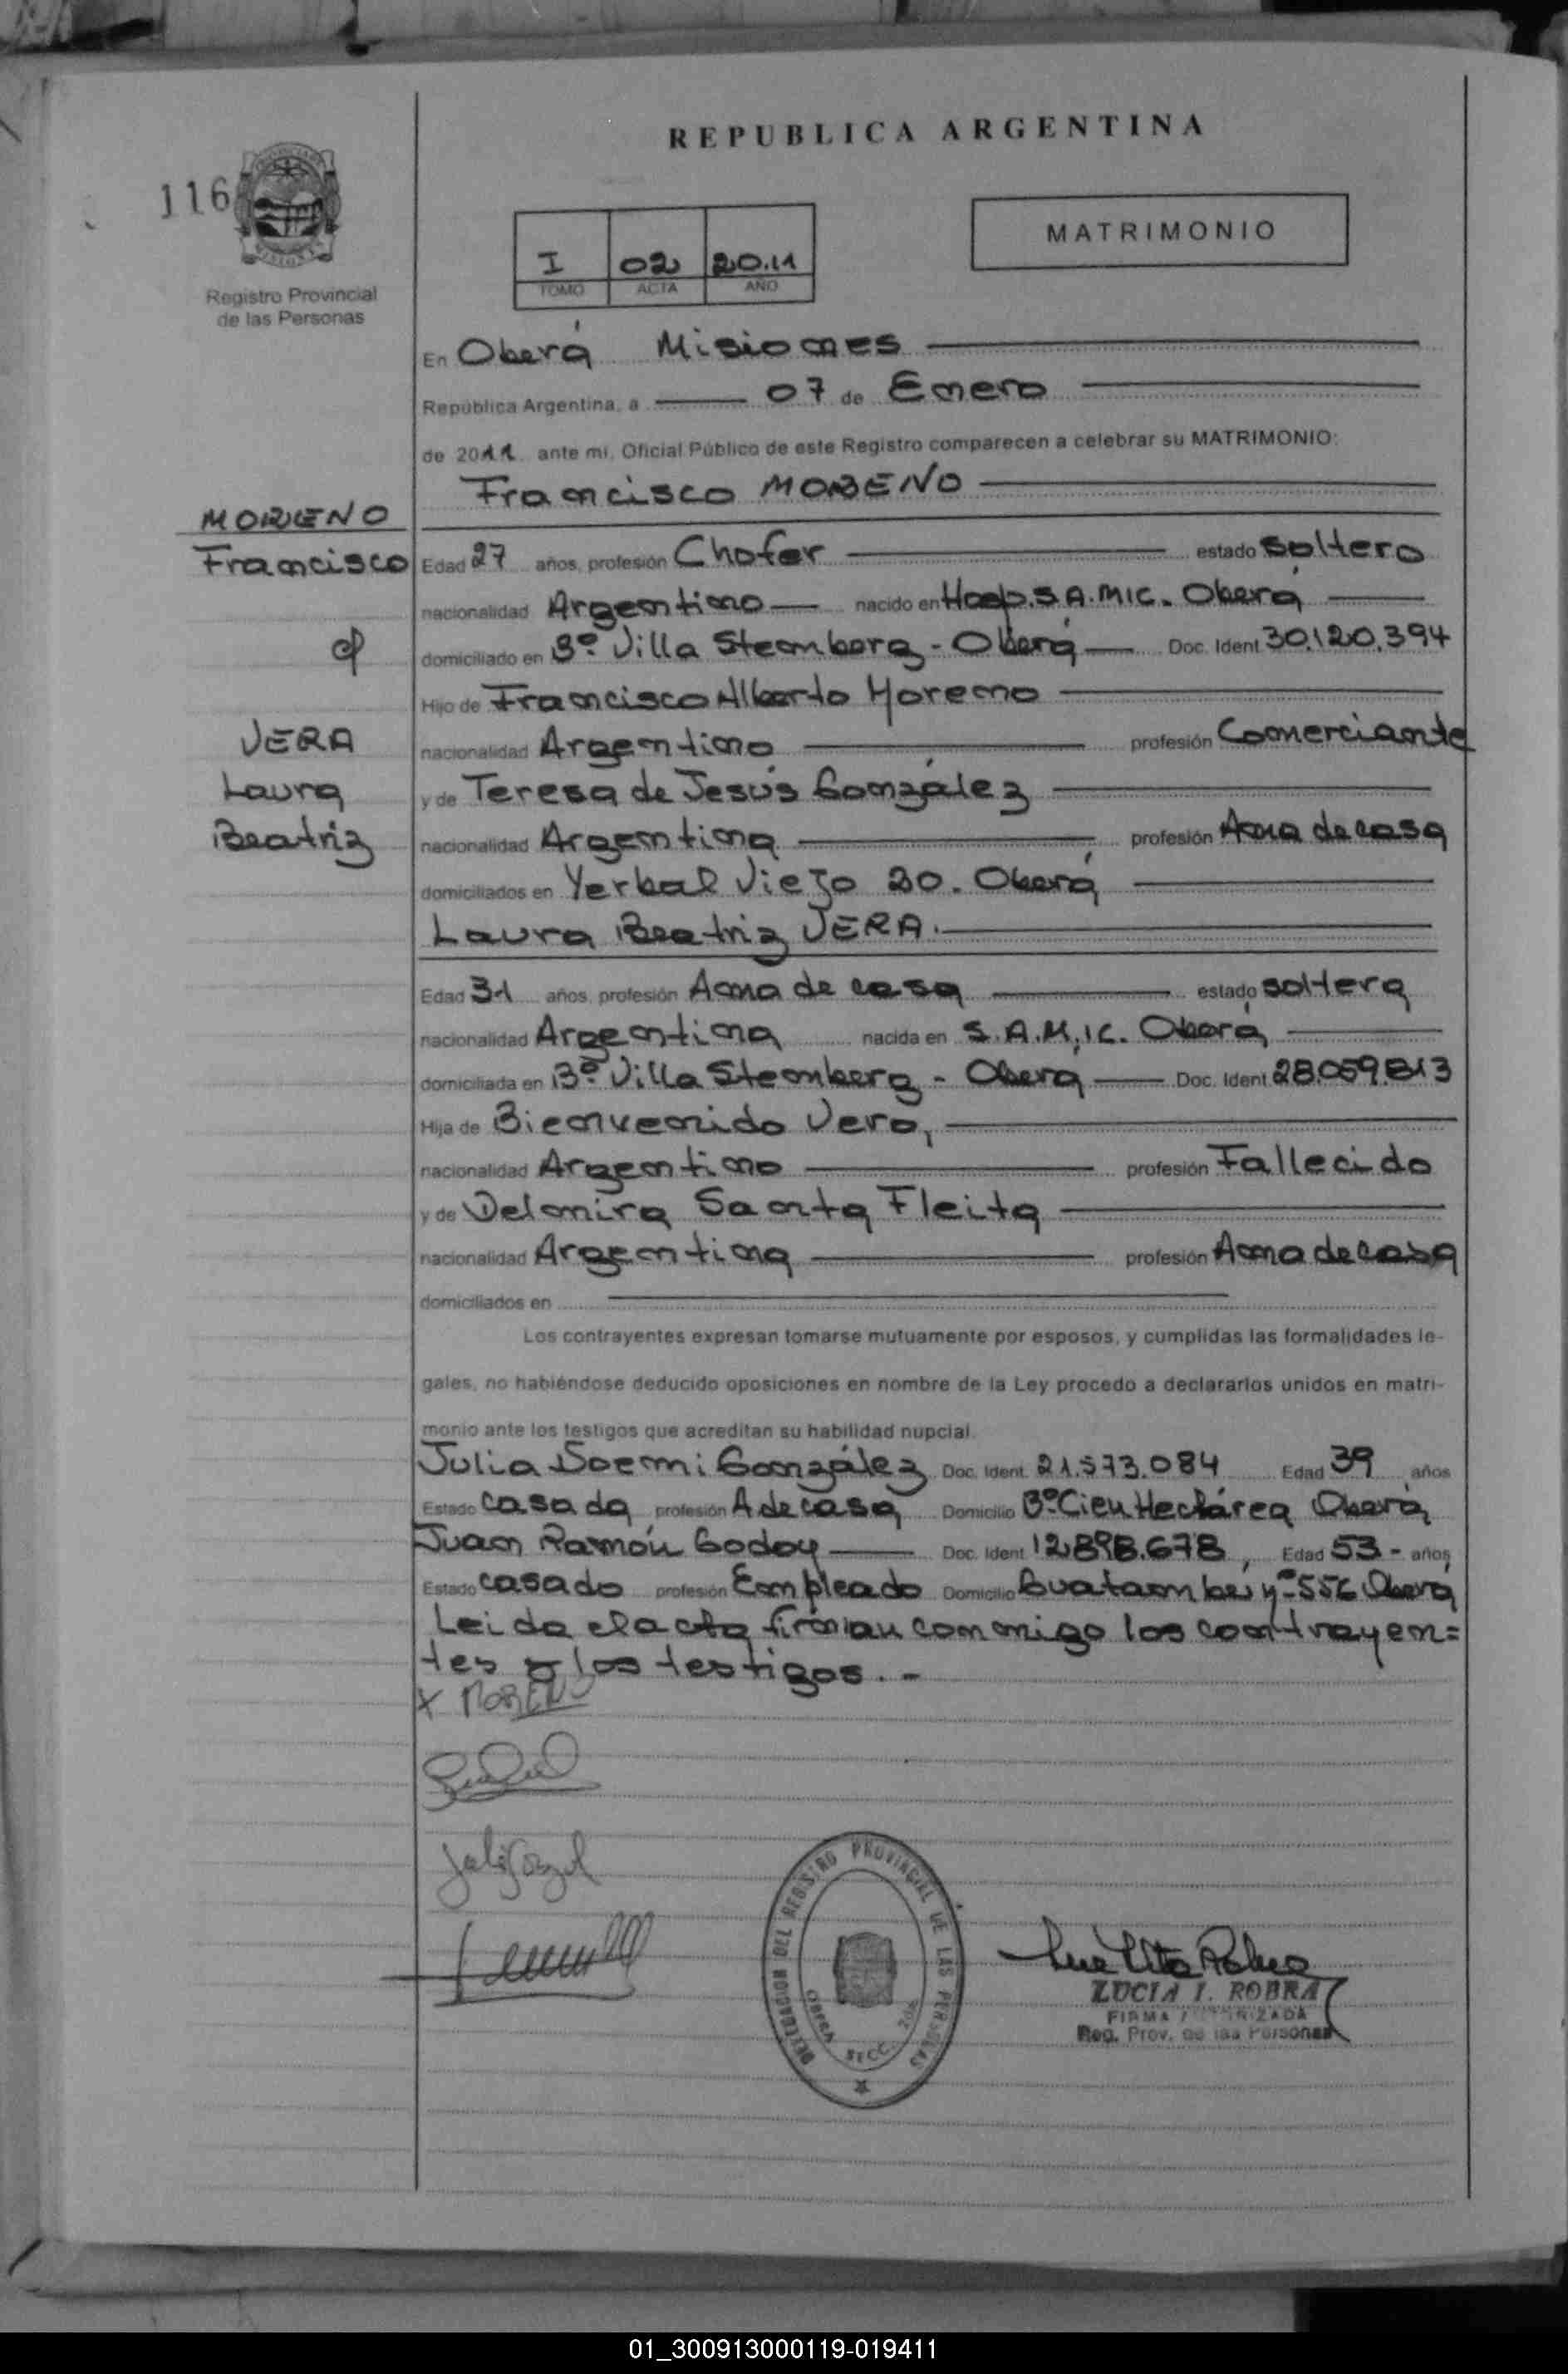 REPUBLICA ARGENTINA
116
MATRIMONIO
I 02 20.11
TOMO ACTA AÑO
Registro Provincial
de las Personas
En Oberá Misiones
República Argentina, a 07 de Enero
de 2011 ante mí, Oficial Público de este Registro comparecen a celebrar su MATRIMONIO:
Francisco MORENO
MORENO
Francisco
Edad 27 años, profesión Chofer estado Soltero
nacionalidad Argentino nacido en Hosp. S.A.MIC. Oberá
domiciliado en Bº Villa Stemberg - Oberá Doc. Ident 30.120.394
Hijo de Francisco Alberto Moreno
VERA
Laura
Beatriz
nacionalidad Argentino profesión Comerciante
y de Teresa de Jesús González
nacionalidad Argentina profesión Ama de casa
domiciliados en Yerbal Viejo 20. Oberá
Laura Beatriz VERA.
Edad 31 años, profesión Ama de casa estado soltera
nacionalidad Argentina nacida en S.A.M.IC. Oberá
domiciliada en Bº Villa Stemberg - Oberá Doc. Ident 28.059.813
Hija de Bienvenido Vera,
nacionalidad Argentino profesión Fallecido
y de Delmira Santa Fleita
nacionalidad Argentina profesión Ama de casa
domiciliados en
Los contrayentes expresan tomarse mutuamente por esposos, y cumplidas las formalidades le-
gales, no habiéndose deducido oposiciones en nombre de la Ley procedo a declararlos unidos en matri-
monio ante los testigos que acreditan su habilidad nupcial.
Julia Noemi González Doc. Ident. 21.573.084 Edad 39 años
Estado Casada profesión A de casa Domicilio Bº Cien Hectárea Oberá
Juan Ramón Godoy Doc. Ident 12.898.678, Edad 53 - años
Estado casado profesión Empleado Domicilio Guatambú nº 556 Oberá
Leida el acta firman conmigo los contrayen=
tes y los testigos. -
X MORENO
DELEGACION DEL REGISTRO PROVINCIAL DE LAS PERSONAS
OBERA SECC.
LUCIA I. ROBRA
FIRMA AUTORIZADA
Reg. Prov. de las Personas
01_300913000119-019411